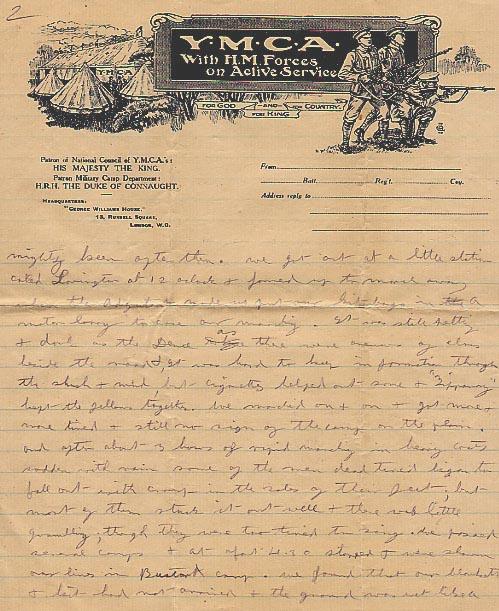 2
Y.M.C.A.
With H.M. Forces
on Active Service
FOR GOD FOR KING AND FOR COUNTRY.
Patron of National Council of Y.M.C.A.'s:
HIS MAJESTY THE KING.
Patron Military Camp Department:
H.R.H. THE DUKE OF CONNAUGHT.
HEADQUARTERS:
"GEORGE WILLIAMS HOUSE,"
13, RUSSELL SQUARE,
LONDON, W.C.
From
Batt. Reg't. Coy.
Address reply to
mighty keen after them. We got out at a little station
called Lavington at 12 oclock & formed up to march away
when the Adjutant made us put our kit bags in a
motor lorry to ease our marching. It was still pelting
& dark as the as there were avenues of elms
beside the road & it was hard to keep in formation through
the slush & mud, but cigarettes helped out some & "Tipperary"
kept the fellows together. We marched on & on & got more &
more tired & still no sign of the camp on the plain.
and after about 3 hours of rapid marching in heavy coats
sodden with rain some of the men dead tired began to
fall out with cramp in the soles of their feet, but
most of them stuck it out well & there was little
grumbling, though they were too tired to sing. We passed
several camps & at abt 4.30 stopped & were shown
our lines in Bustard camp. We found that our blankets
& kit had not arrived & the ground was wet like a